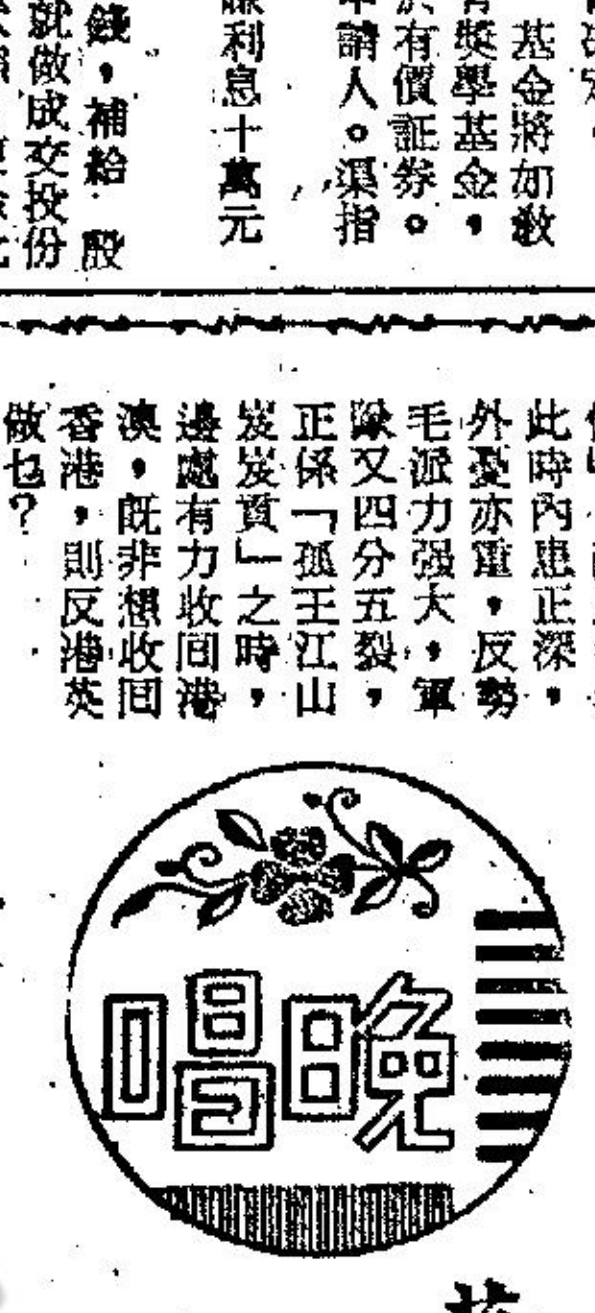 基金將加敎
有獎學基金，
於有價証券。
申請人。渠指
利息十萬元
錢，補給 殷
就做成交投份
此時內患正深，
外憂亦重，反勢
毛派力强大，軍
隊又四分五裂，
正係「孤王江山
岌岌貢」之時，
邊處有力收回港
澳，既非想收回
香港，則反港英
做乜？
晚唱